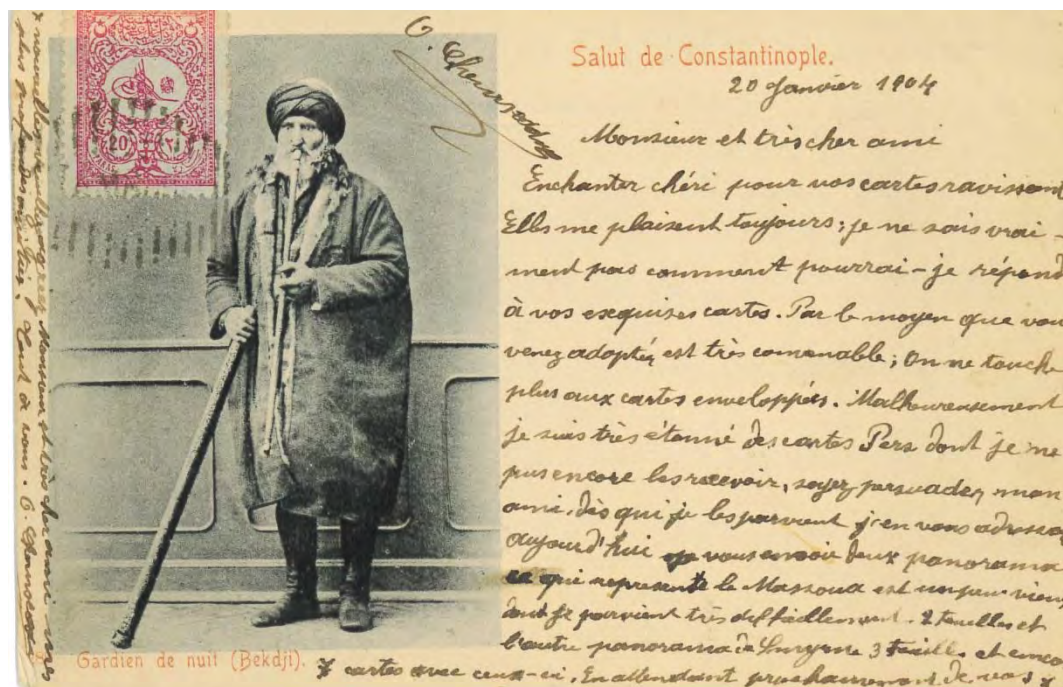 Salut de Constantinople.
20 Janvier 1904
Monsieur et très cher ami
Enchanter chéri pour vos cartes ravissant
Ells me plaisent toujours; je ne sais vrai-
ment pas comment pourrai-je répond
à vos exquises cartes. Par le moyen que vou
venez adoptéz est très convenable; On ne touche
plus aux cartes enveloppées. Malheureusement
je suis très étonné des cartes Pers dont je ne
pus encore les recevoir, soyez persuadez mon
ami, dès qui je les parvient j'en vous adresse,
aujourd'hui je vous envoir deux panorama
ce qui represente le Massoua est un peu vieu
dont je parvient très difficillement. 2 feuilles et
l'autre panorama de Smyrne 3 feuilles et encor
7 cartes avec ceux-ci. En attendant prochainement de vos
nouvelles veuillez agréez Monsieur et très cher ami mes
plus profondes Tout à vous.
20
Gardien de nuit (Bekdji).